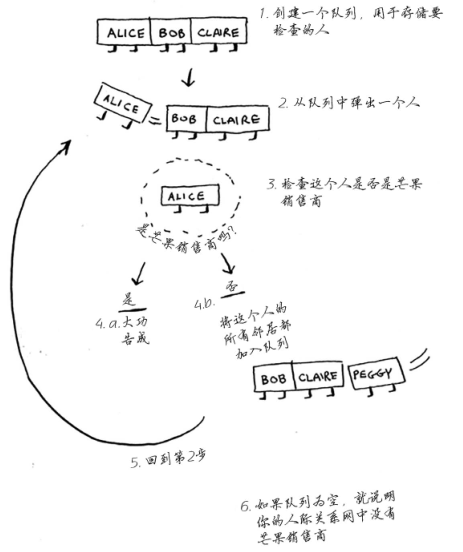 ALICE BOB CLAIRE
1. 创建一个队列，用于存储要
检查的人
ALICE
BOB CLAIRE
2. 从队列中弹出一个人
ALICE
是芒果销售商吗?
3. 检查这个人是否是芒果
销售商
是
4.a. 大功
告成
否
4.b.
将这个人的
所有邻居都
加入队列
BOB CLAIRE PEGGY
5. 回到第2步
6. 如果队列为空，就说明
你的人际关系网中没有
芒果销售商